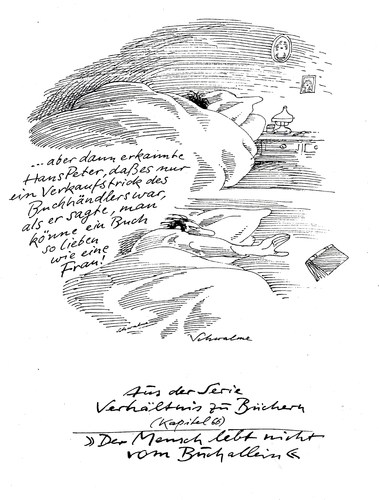 ...aber dann erkannte
HansPeter, daß es nur
ein Verkaufstrick des
Buchhändlers war,
als er sagte, man
könne ein Buch
so lieben
wie eine
Frau!
Schwalme
Aus der Serie
Verhältnis zu Büchern
(Kapitel 66)
»Der Mensch lebt nicht
vom Buch allein«